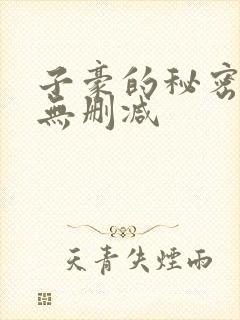 子豪的秘密
無删减
天青失煙雨